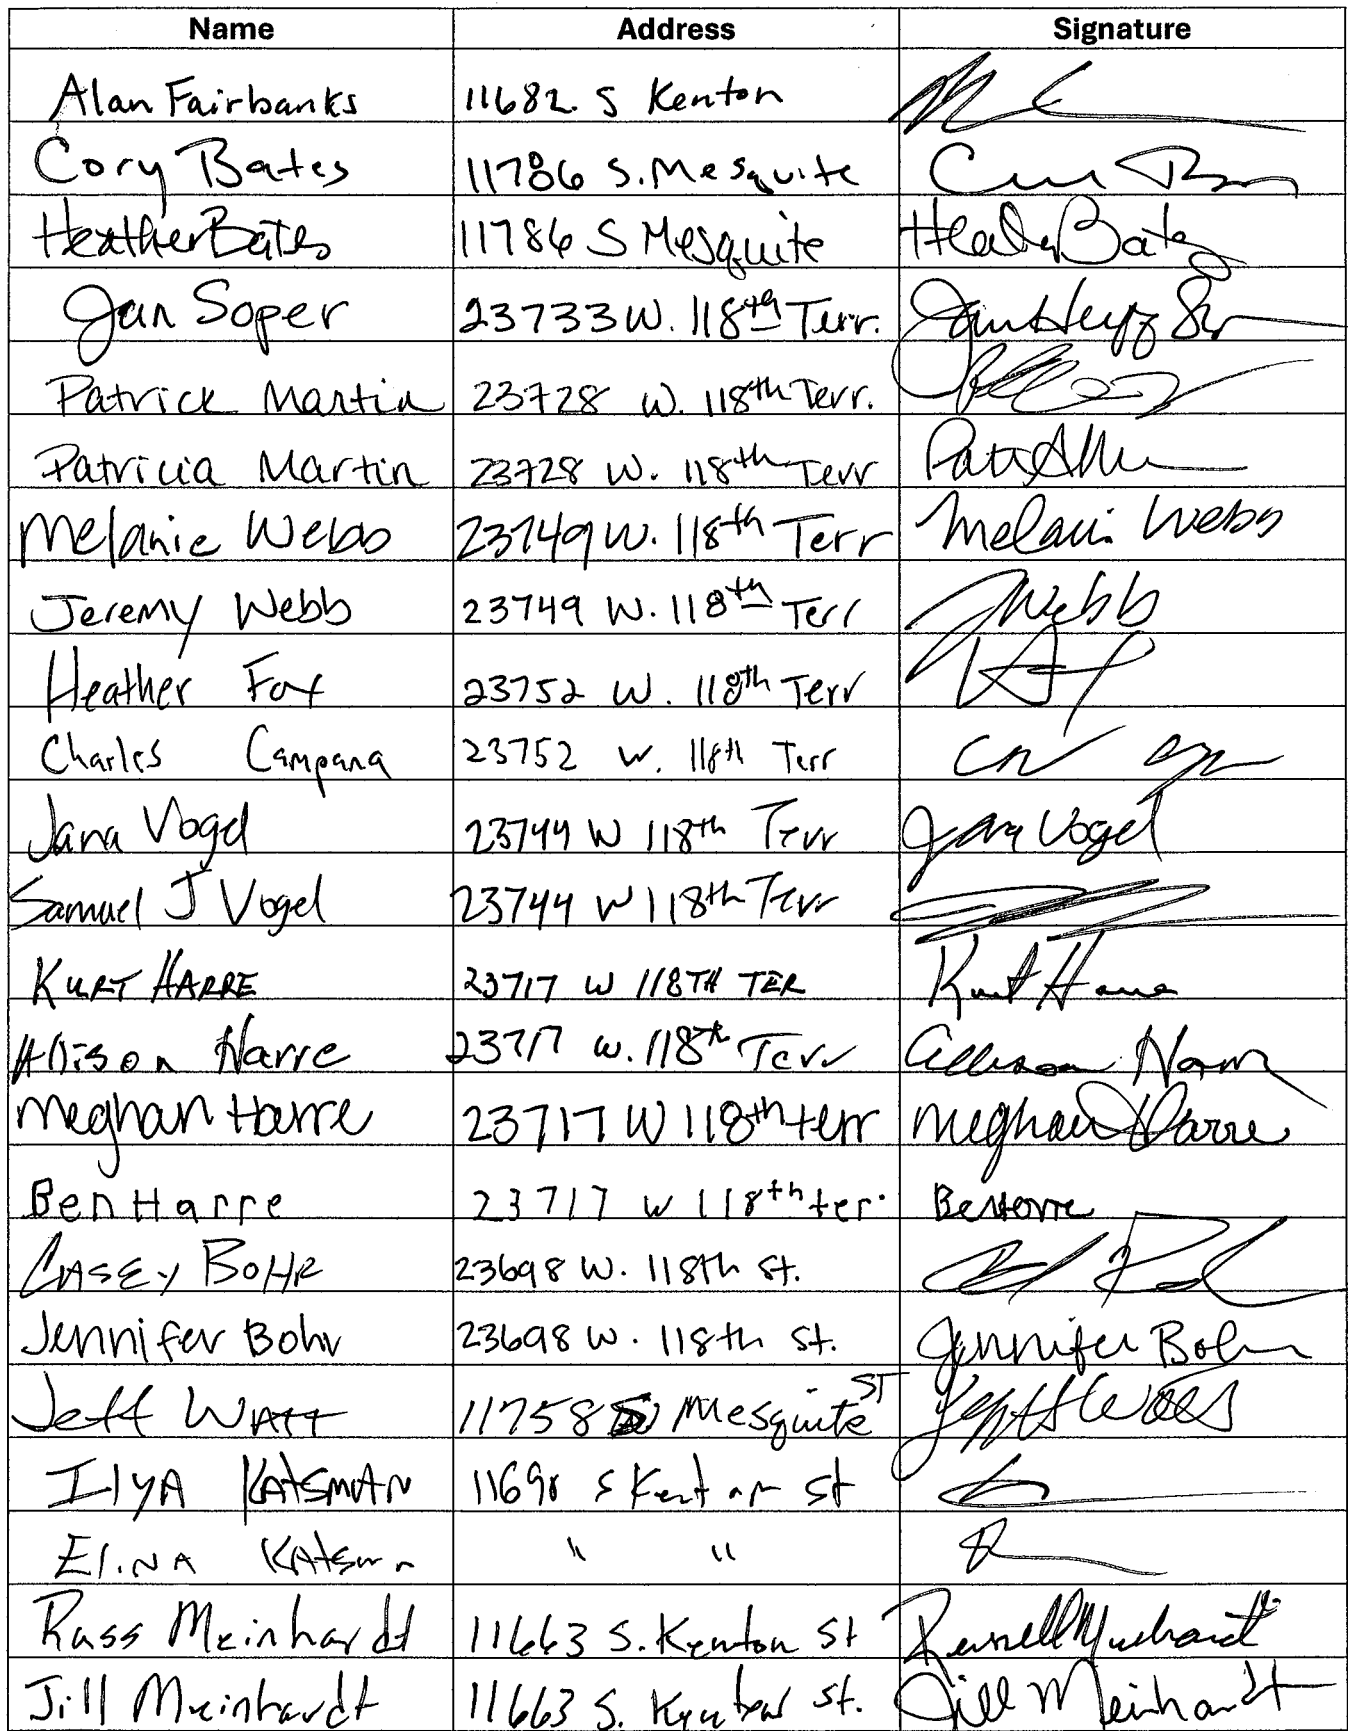 Name Address Signature
Alan Fairbanks 11682 S Kenton
Cory Bates 11786 S. Mesquite
Heather Bates 11786 S Mesquite Heather Bates
Jan Soper 23733 W. 118th Terr.
Patrick Martin 23728 W. 118th Terr.
Patricia Martin 23728 W. 118th Terr
Melanie Webb 23749 W. 118th Terr Melanie Webb
Jeremy Webb 23749 W. 118th Terr JWebb
Heather Fox 23752 W. 118th Terr
Charles Campana 23752 W. 118th Terr
Jana Vogel 23744 W 118th Terr Jana Vogel
Samuel J Vogel 23744 W 118th Terr
KURT HARRE 23717 W 118TH TER Kurt Harre
Allison Harre 23717 W. 118th Terr Allison Harre
Meghan Harre 23717 W 118th terr Meghan Harre
Ben Harre 23717 W 118th ter. Ben Harre
CASEY BOHR 23698 W. 118th St.
Jennifer Bohr 23698 W. 118th St. Jennifer Bohr
Jeff WATT 11758 S Mesquite ST
IlYA KATSMAN 11698 S Kenton St
ElINA KATSMAN " "
Russ Meinhardt 11663 S. Kenton St Russell Meinhardt
Jill Meinhardt 11663 S. Kenton St. Jill Meinhardt